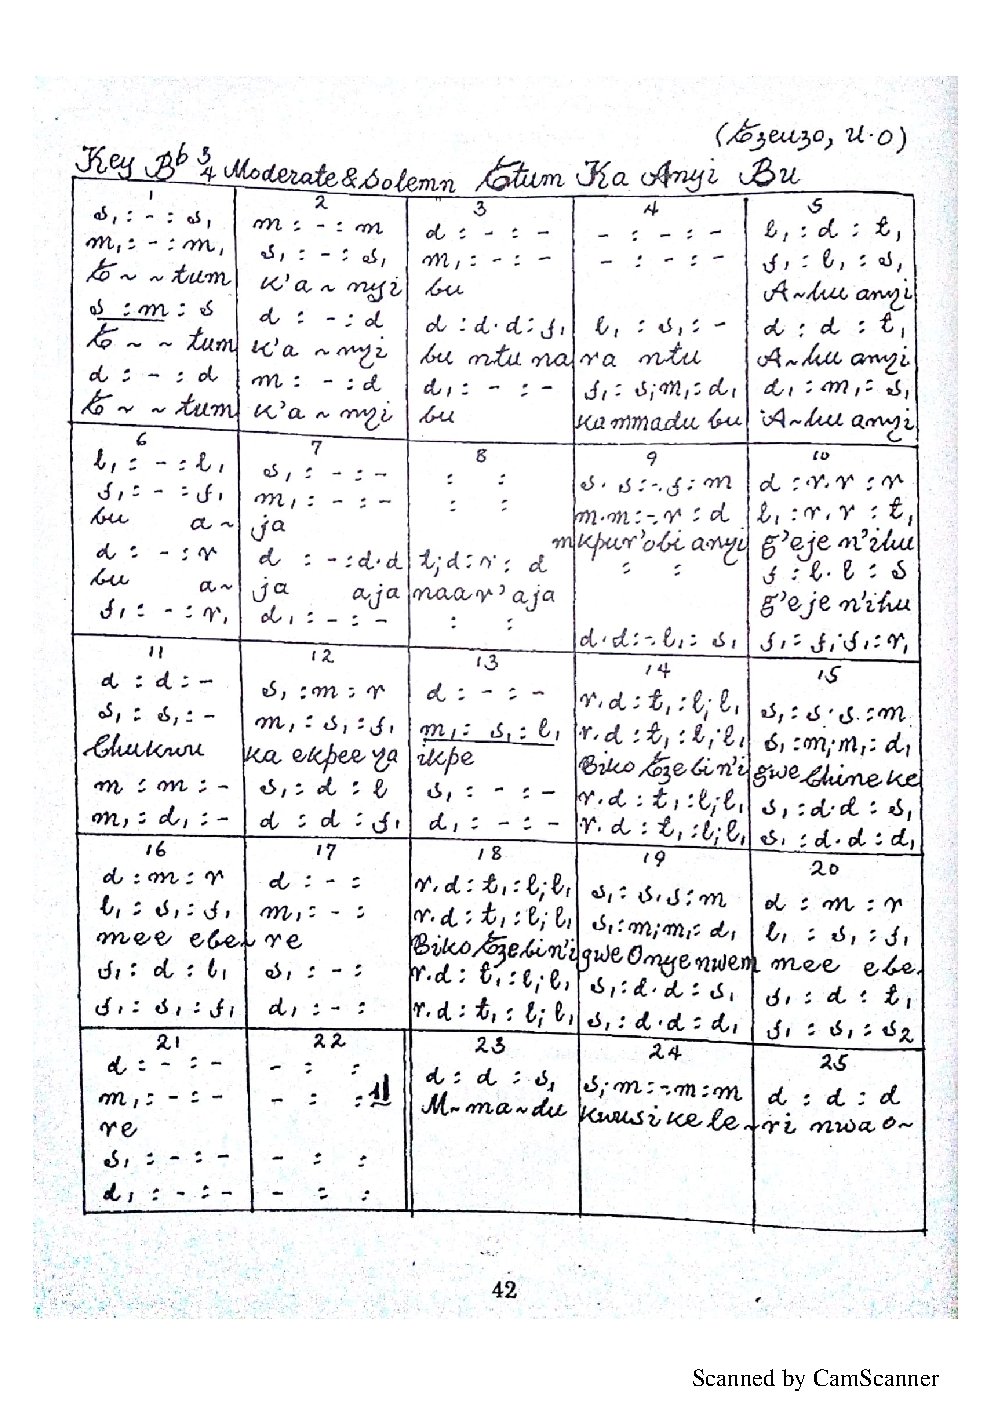 (Ezeuzo, U.O)
Key Bb 3/4 Moderate & Solemn Etum Ka Anyi Bu
1
s, : - : s,
m, : - : m,
E ~ ~ tum
s : m : s
E ~ ~ tum
d : - : d
E ~ ~ tum
2
m : - : m
s, : - : s,
k'a ~ nyi
d : - : d
k'a ~ nyi
m : - : d
k'a ~ nyi
3
d : - : -
m, : - : -
bu
d : d . d : f,
bu ntu na
d, : - : -
bu
4
- : - : -
- : - : -
l, : s, : -
ra ntu
f, : s; m, : d,
ka mmadu bu
5
l, : d : t,
f, : l, : s,
A~hu anyi
d : d : t,
A~hu anyi
d, : m, : s,
A~hu anyi
6
l, : - : l,
f, : - : f,
bu a~
d : - : r
bu a~
f, : - : r,
7
s, : - : -
m, : - : -
ja
d : - : d . d
ja aja
d, : - : -
8
: :
: :
t; d : r : d
naar'aja
: :
9
s . s : -. f : m
m . m : -. r : d
mkpur'obi anyi
: :
d . d : -. l, : s,
10
d : r . r : r
l, : r . r : t,
g'eje n'ihu
f : l . l : s
g'eje n'ihu
f, : f; f, : r,
11
d : d : -
s, : s, : -
Chukwu
m : m : -
m, : d, : -
12
s, : m : r
m, : s, : f,
ka ekpee ya
s, : d : l
d : d : f,
13
d : - : -
m, : s, : l,
ikpe
s, : - : -
d, : - : -
14
r . d : t, : l; l,
r . d : t, : l; l,
Biko Eze bi n'i
r . d : t, : l; l,
r . d : t, : l; l,
15
s, : s . s : m
s, : m; m, : d,
gwe Chineke
s, : d . d : s,
s, : d . d : d,
16
d : m : r
l, : s, : f,
mee ebe
f, : d : l,
f, : s, : f,
17
d : - :
m, : - :
re
s, : - :
d, : - :
18
r . d : t, : l; l,
r . d : t, : l; l,
Biko Eze bi n'i
r . d : t, : l; l,
r . d : t, : l; l,
19
s, : s . s : m
s, : m; m, : d,
gwe Onye nwem
s, : d . d : s,
s, : d . d : d,
20
d : m : r
l, : s, : f,
mee ebe
f, : d : t,
f, : s, : s2
21
d : - : -
m, : - : -
re
s, : - : -
d, : - : -
22
- : :
- : :
- : :
- : :
23
d : d : s,
M~ma~du
24
s; m : -. m : m
kwusikele~
25
d : d : d
ri nwa o~
42
Scanned by CamScanner